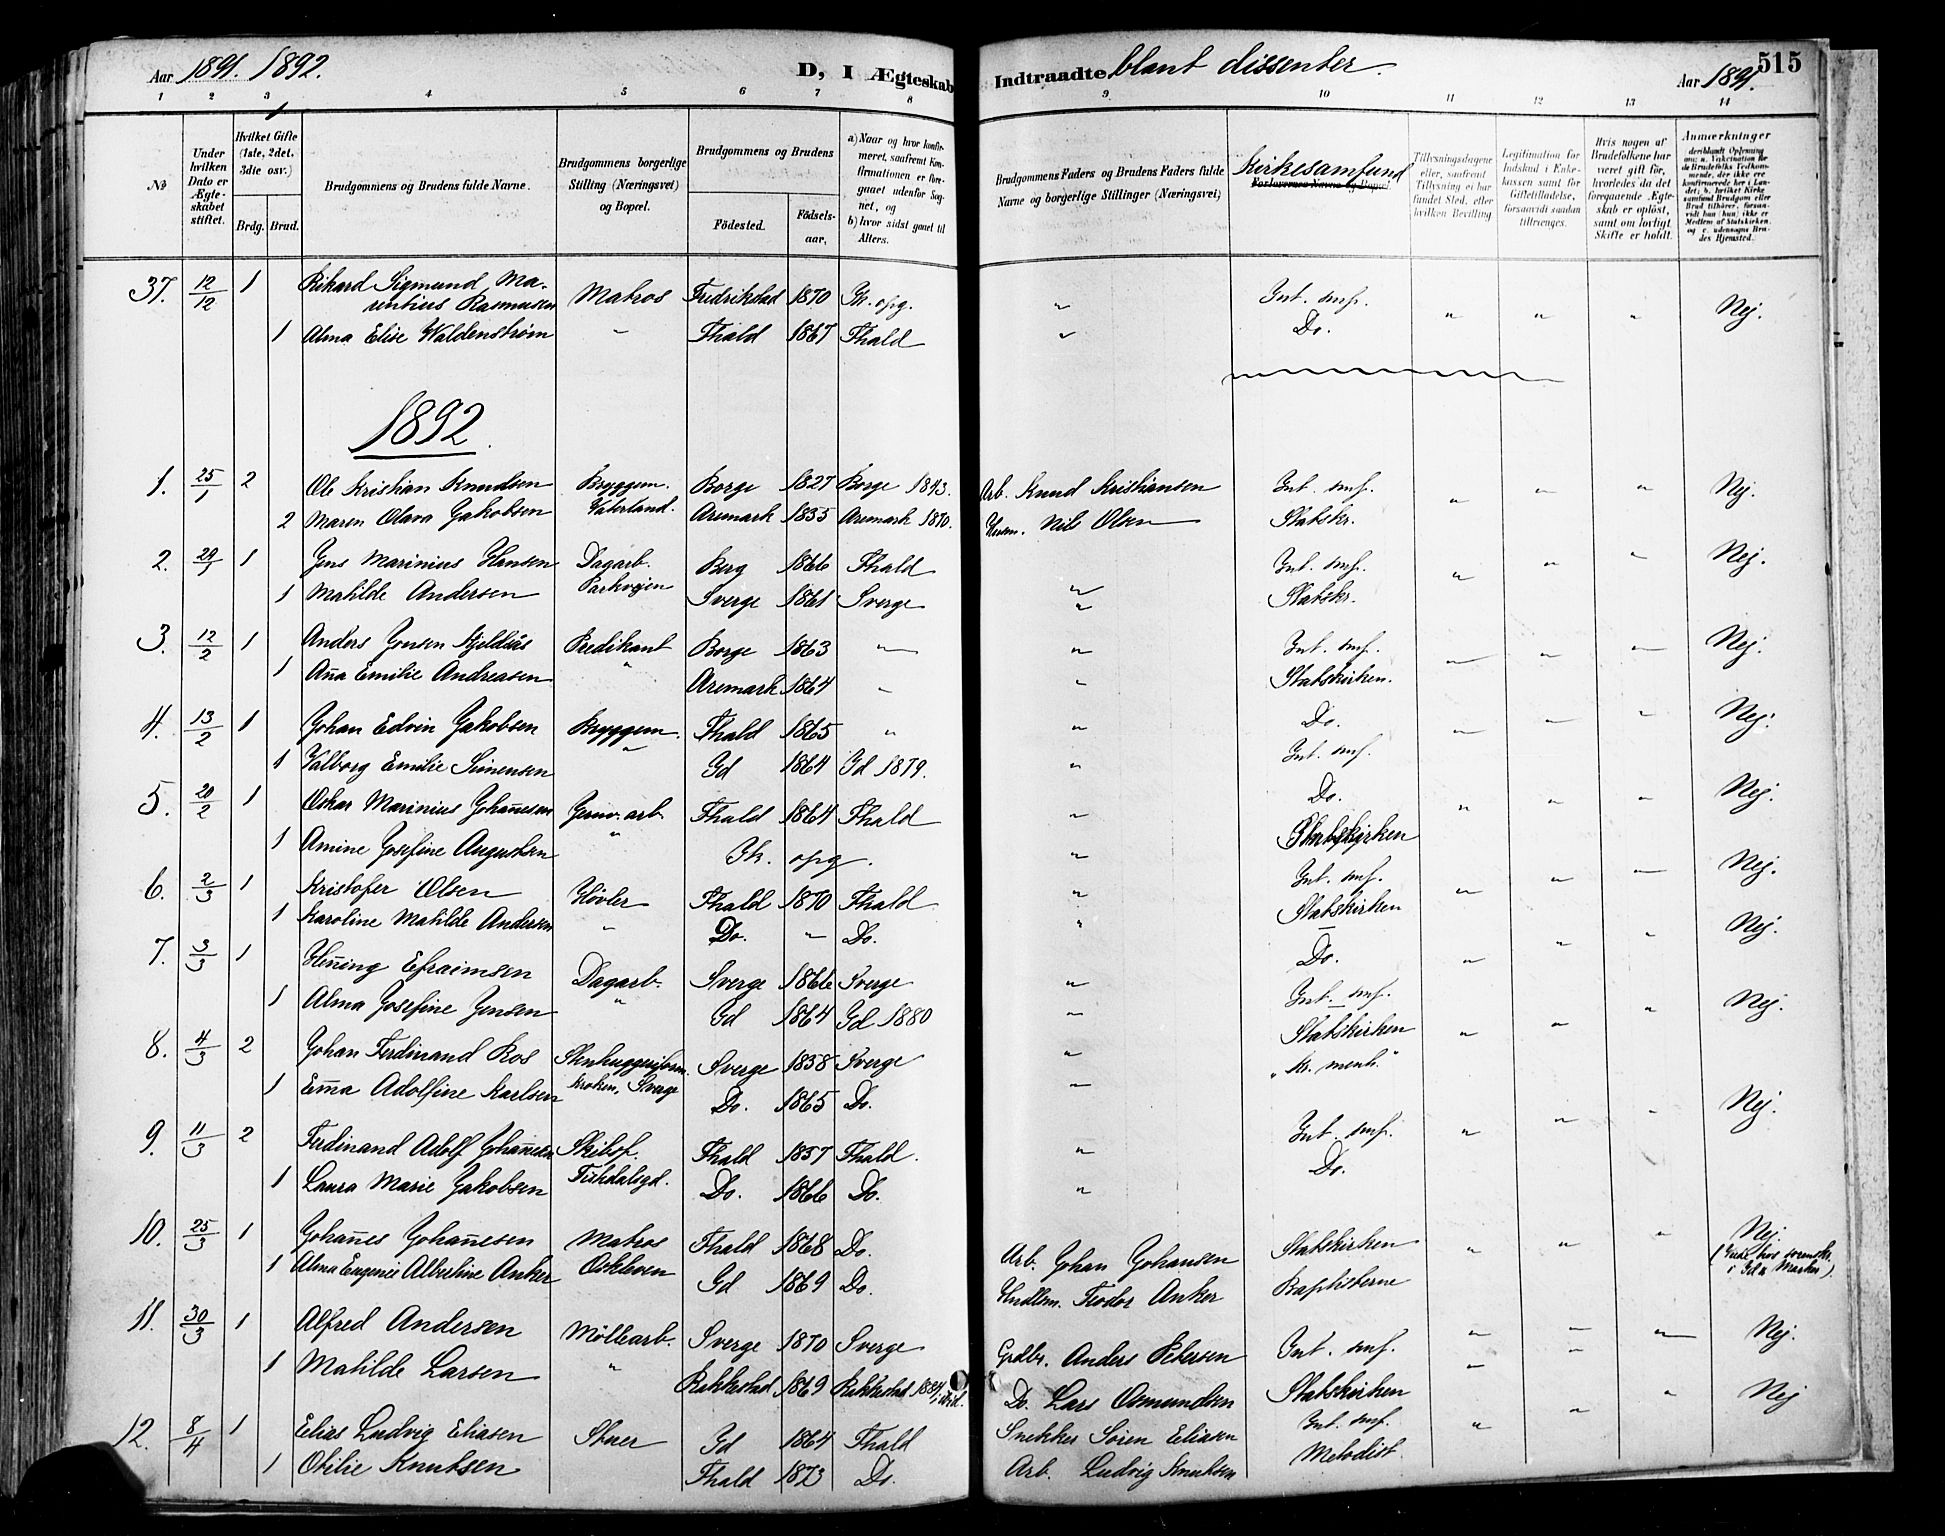 Aar 1891. 1892.
D, I Ægteskab
Indtraadte blant dissenter.
Aar 1891.
515
1 2 3 4 5 6 7 8 9 10 11 12 13 14
No
Under hvilken Dato er Ægteskabet stiftet.
Hvilket Gifte (1ste, 2det, 3die osv.)
Brdg. Brud.
Brudgommens og Brudens fulde Navne.
Brudgommens borgerlige Stilling (Næringsvei) og Bopæl.
Brudgommens og Brudens
Fødested.
Fødselsaar,
a) Naar og hvor konfirmeret, saafremt Konfirmationen er foregaaet udenfor Sognet, og
b) hvor sidst gaaet til Alters.
Brudgommens Faders og Brudens Faders fulde Navne og borgerlige Stillinger (Næringsvei)
Kirkesamfund
Forlovernes Navne og Bopæl
Tillysningsdagene eller, saafremt Tillysning ei har fundet Sted, efter hvilken Bevilling
Legitimation for Indskud i Enkekassen samt for Giftetilladelse, forsaavidt saadan tiltrænges.
Hvis nogen af Brudefolkene har været gift før, hvorledes da det foregaaende Ægteskab er opløst, samt om lovligt Skifte er holdt.
Anmærkninger
37. 12/12 1 Rikard Sigmund Ma-
rentius Rasmussen Matros Fredrikstad 1870 Ik. opg. " Int. smf. " " " Nej.
1 Alma Elise Waldenstrøm " Fhald 1867 Fhald " Do.
1892
1. 25/1 2 Ole Kristian Knudsen Bryggem. Borge 1827 Borge 1843. Arb. Knud Kristiansen Int. smf. " " " Nej.
2 Maren Olava Jakobsen Vaterland. Aremark 1835 Aremark 1870. Husm. Nils Olsen Statskr.
2. 29/1 1 Jens Marinius Hansen Dagarb. Berg 1866 Fhald " Int. smf. " " " Nej.
1 Matilde Andersen Parkvejen Sverge 1861 Sverge " Statskr.
3. 12/2 1 Anders Jonsen Kjeldsås Predikant Borge 1863 " " Int. smf. " " " Nej.
1 Aña Emilie Andreasen " Aremark 1864 " " Statskirken.
4. 13/2 1 Johan Edvin Jakobsen Bryggem. Fhald 1865 " " Do. " " " Nej.
1 Valborg Emilie Simensen " Id 1864 Id 1879. " Int. smf.
5. 20/2 1 Oskar Marinius Johañesen Jernv. arb. Fhald 1864 Fhald " Do. " " " Nej.
1 Amine Josefine Augustsen " Ik. opg. " Statskirken
6. 2/3 1 Kristofer Olsen Høvler Fhald 1870 Fhald " Int. smf. " " " Nej.
1 Karoline Matilde Andersen " Do. " Do. " Statskirken
7. 3/3 1 Heñing Efraimsen Dagarb. Sverge 1866 Sverge " Do. " " " Nej.
1 Alma Josefine Jensen " Id 1864 Id 1880 " Int. smf.
8. 4/3 2 Johan Ferdinand Ros Stenhuggeriform. Sverge 1838 Sverge " Statskirken " " " Nej.
1 Em̄a Adolfine Karlsen Kroken, Sverge Do. 1865 Do. " "Kr. menh."
9. 11/3 2 Ferdinand Adolf Johañesen Skibsf. Fhald 1857 Fhald. " Int. smf. " " " Nej.
1 Laura Marie Jakobsen Fiskdalsgd. Do. 1866 Do. " Do.
10. 25/3 1 Johañes Johañesen Matros Fhald 1868 Do. Arb. Johan Johansen Statskirken " " " Nej.
1 Alma Eugenie Albertine Anker Oskleven Id 1869 Do. Hndlsm. Teodor Anker Baptisterne
11. 30/3 1 Alfred Andersen Møllearb. Sverge 1870 Sverge Grdbr. Anders Petersen Int. smf. " " " Nej.
1 Matilde Larsen " Rakkestad 1869 Rakkestad 1884, Do. Lars Osmundsen Statskirken
12. 8/4 1 Elias Ludvig Eliasen Skuer Id 1864 Fhald Snekker Søren Eliasen Int. smf. " " " Nej
1 Otilie Knutsen Fhald 1873 Do. Arb. Ludvig Knutsen Metodist.